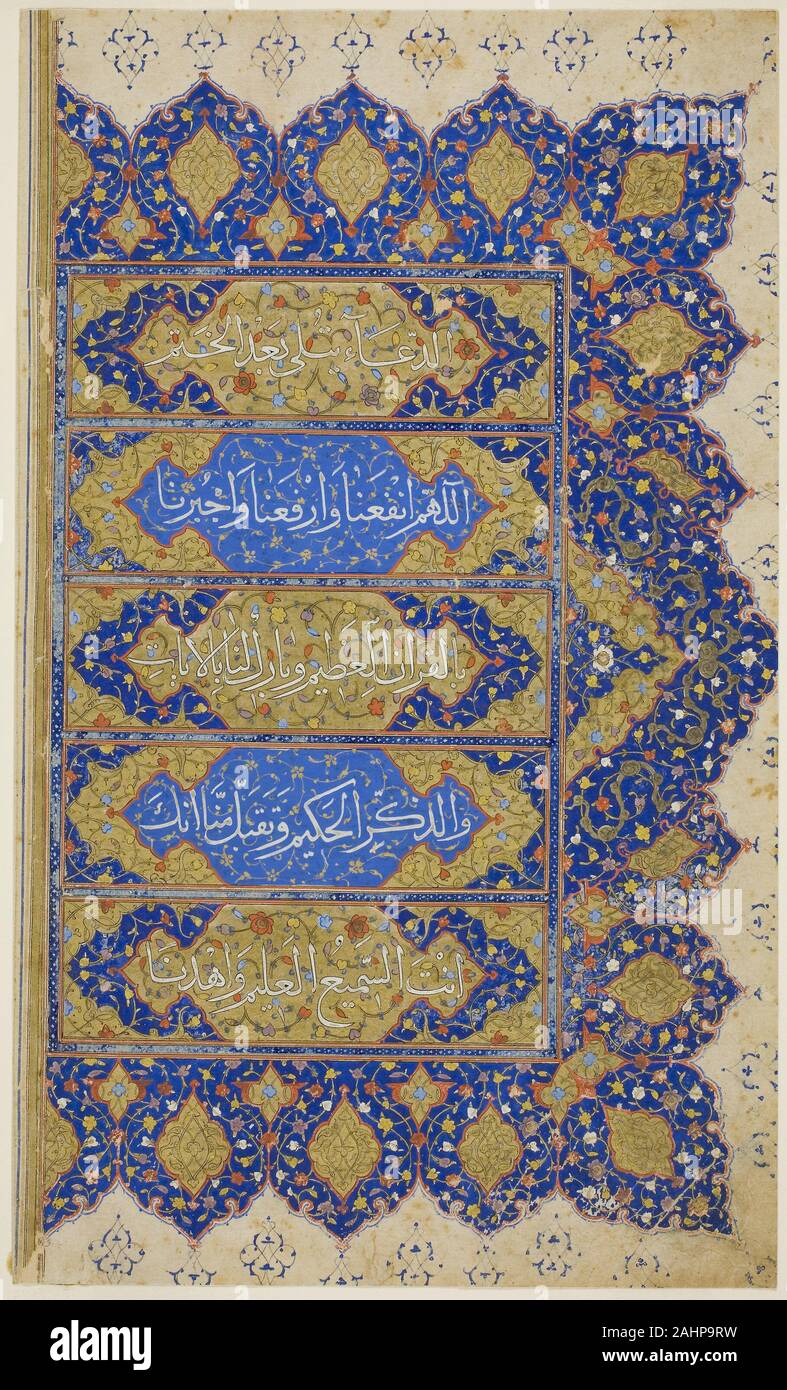 الدّعَآء يُتلى بَعْدَ الخَتم
اللّٰهُمَّ انْفَعنَا وَارْفَعنَا وَاجْبُرنَا
بِالقُرآنِ العَظِيمِ وَبَارِك لنَا بِالايَاتِ
وَالذِكْرِ الحَكيمِ وَتَقَبَّل مِنَّا انكَ
انْتَ السَّمِيعُ العَلِيمُ وَاهْدِنَا
alamy
alamy
alamy
alamy
Image ID: 2AHP9RW
www.alamy.com